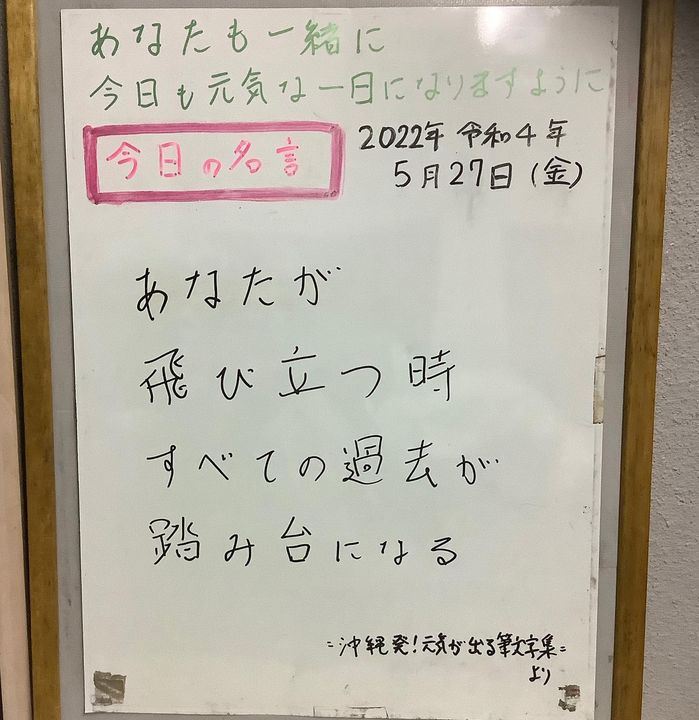 あなたも一緒に
今日も元気な一日になりますように
今日の名言
2022年 令和4年
5月27日(金)
あなたが
飛び立つ時
すべての過去が
踏み台になる
=沖縄発!元気が出る筆文字集=
より